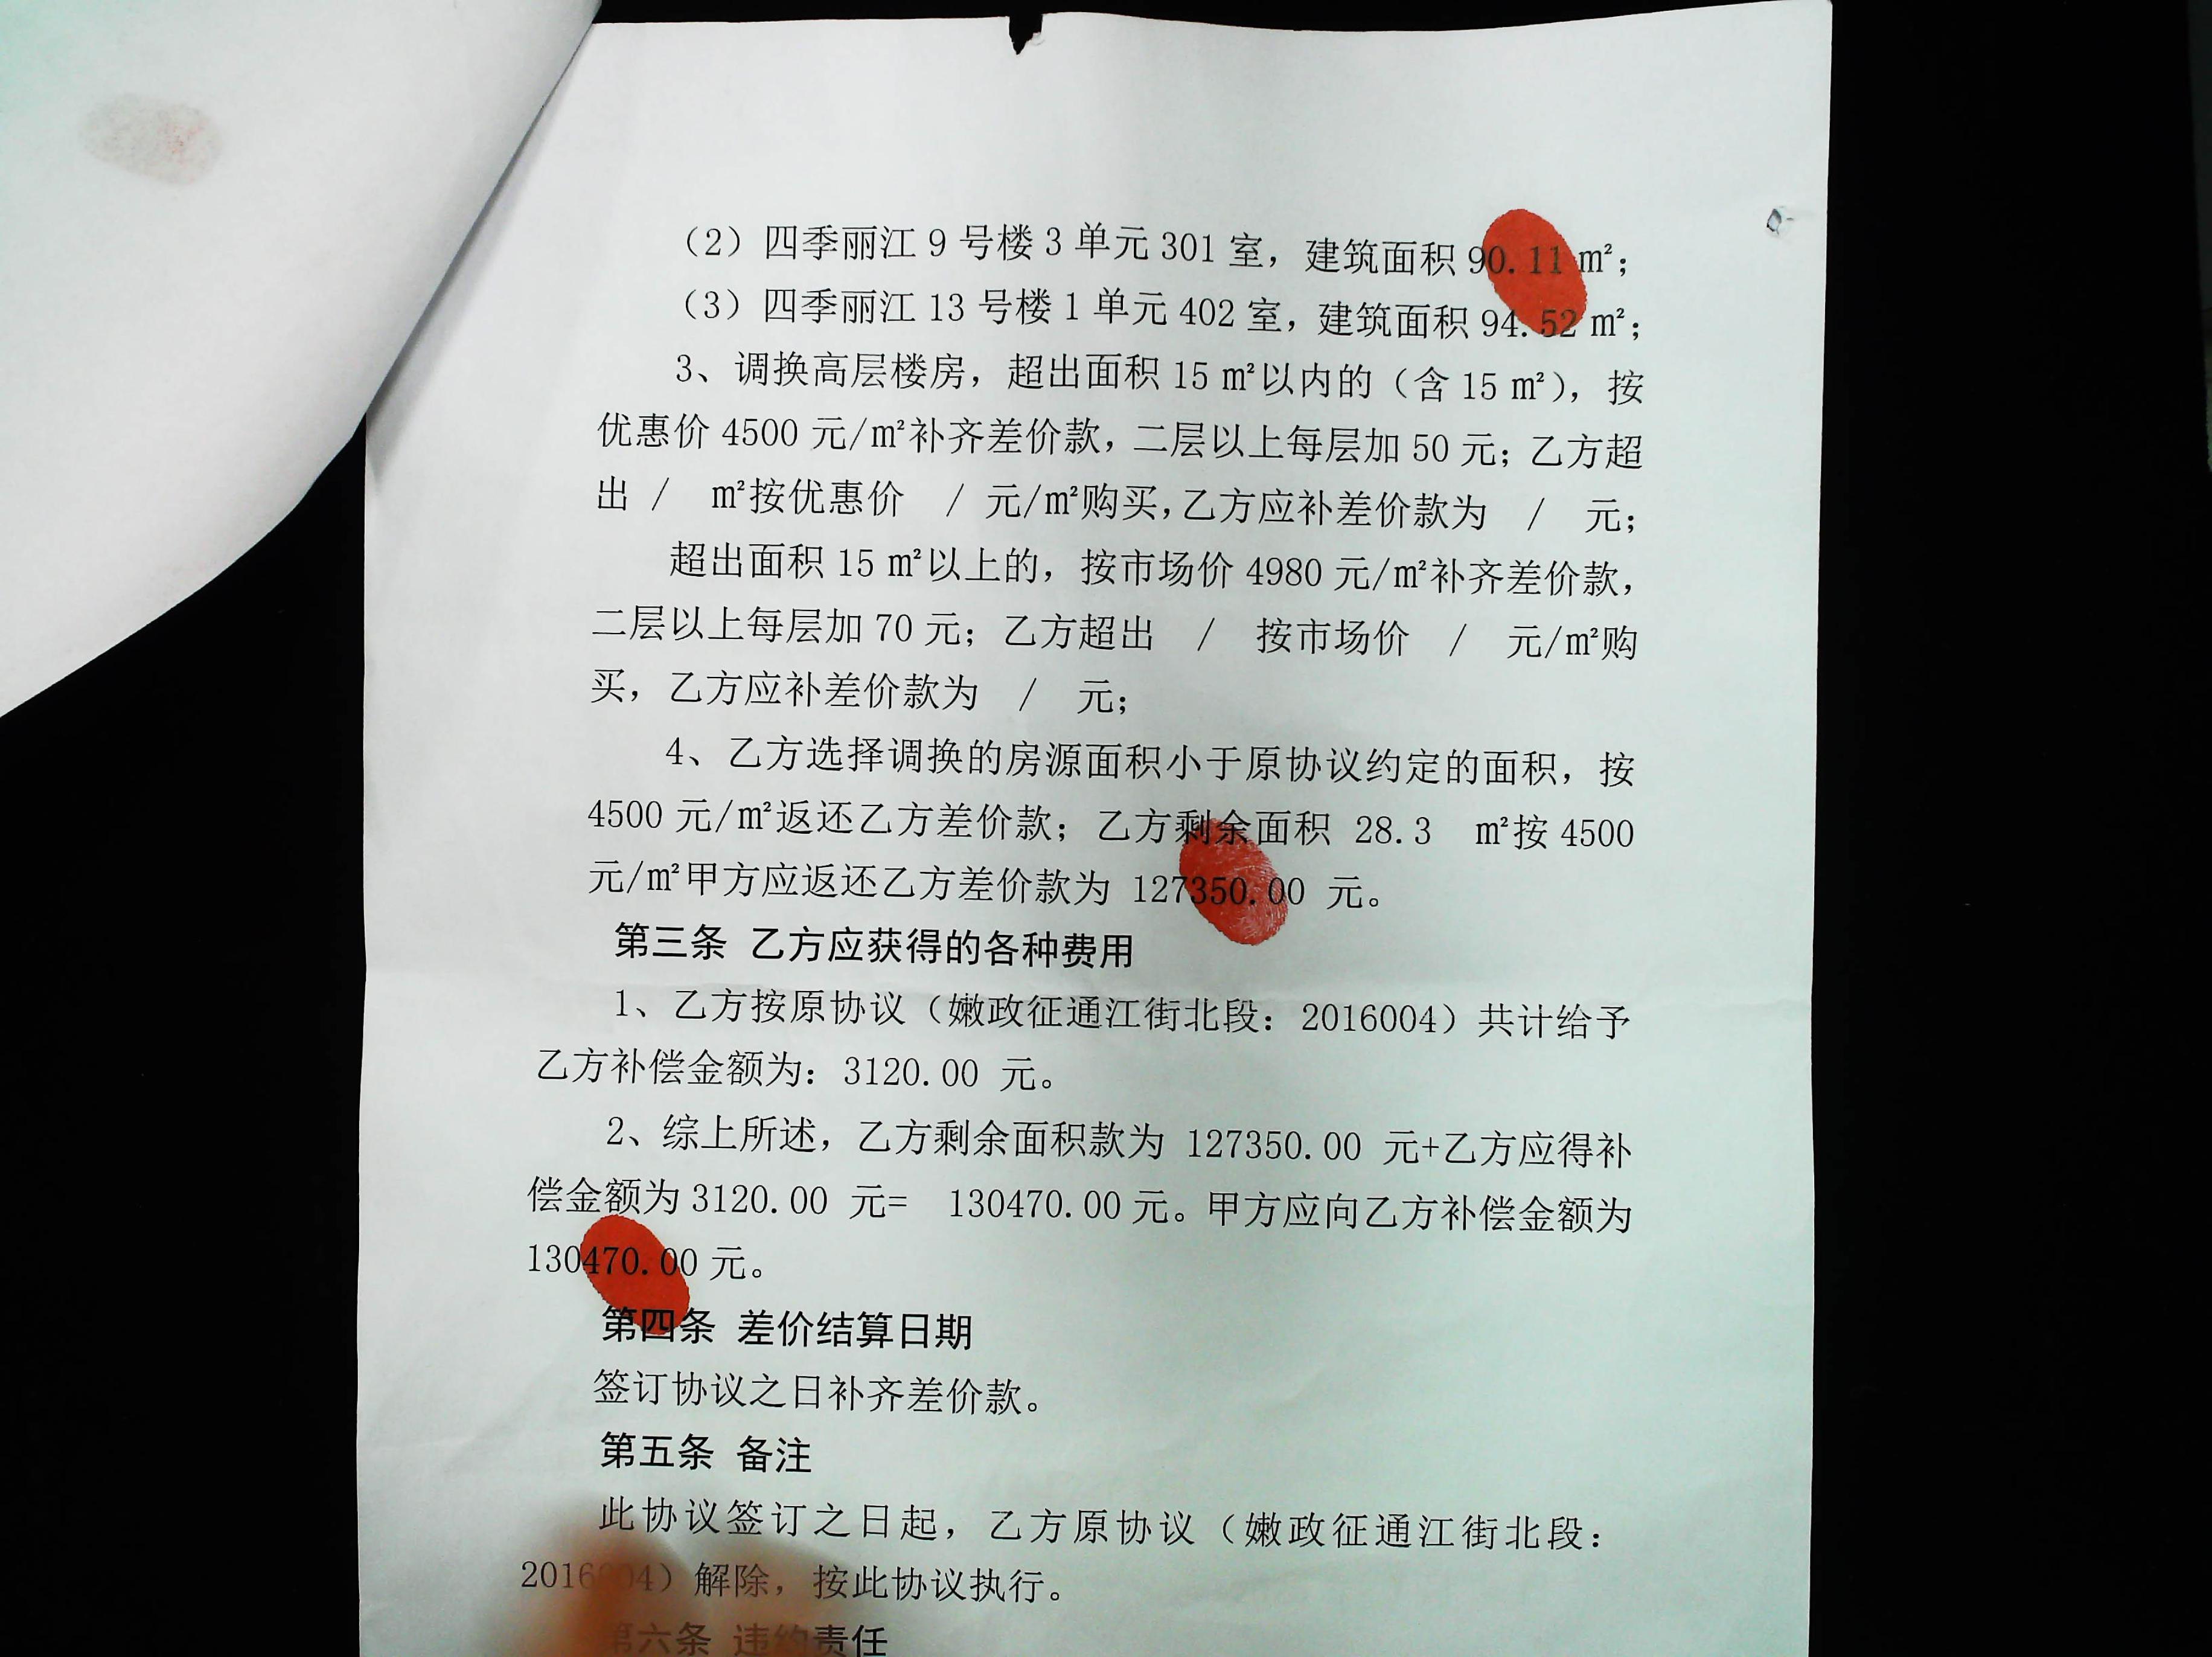 （2）四季丽江 9 号楼 3 单元 301 室，建筑面积 90.11 ㎡；
（3）四季丽江 13 号楼 1 单元 402 室，建筑面积 94.52 ㎡；
3、调换高层楼房，超出面积 15 ㎡以内的（含 15 ㎡），按
优惠价 4500 元/㎡补齐差价款，二层以上每层加 50 元；乙方超
出 / ㎡按优惠价 / 元/㎡购买，乙方应补差价款为 / 元；
超出面积 15 ㎡以上的，按市场价 4980 元/㎡补齐差价款，
二层以上每层加 70 元；乙方超出 / 按市场价 / 元/㎡购
买，乙方应补差价款为 / 元；
4、乙方选择调换的房源面积小于原协议约定的面积，按
4500 元/㎡返还乙方差价款；乙方剩余面积 28.3 ㎡按 4500
元/㎡甲方应返还乙方差价款为 127350.00 元。
第三条 乙方应获得的各种费用
1、乙方按原协议（嫩政征通江街北段：2016004）共计给予
乙方补偿金额为：3120.00 元。
2、综上所述，乙方剩余面积款为 127350.00 元+乙方应得补
偿金额为 3120.00 元= 130470.00 元。甲方应向乙方补偿金额为
130470.00 元。
第四条 差价结算日期
签订协议之日补齐差价款。
第五条 备注
此协议签订之日起，乙方原协议（嫩政征通江街北段：
2016004）解除，按此协议执行。
第六条 违约责任